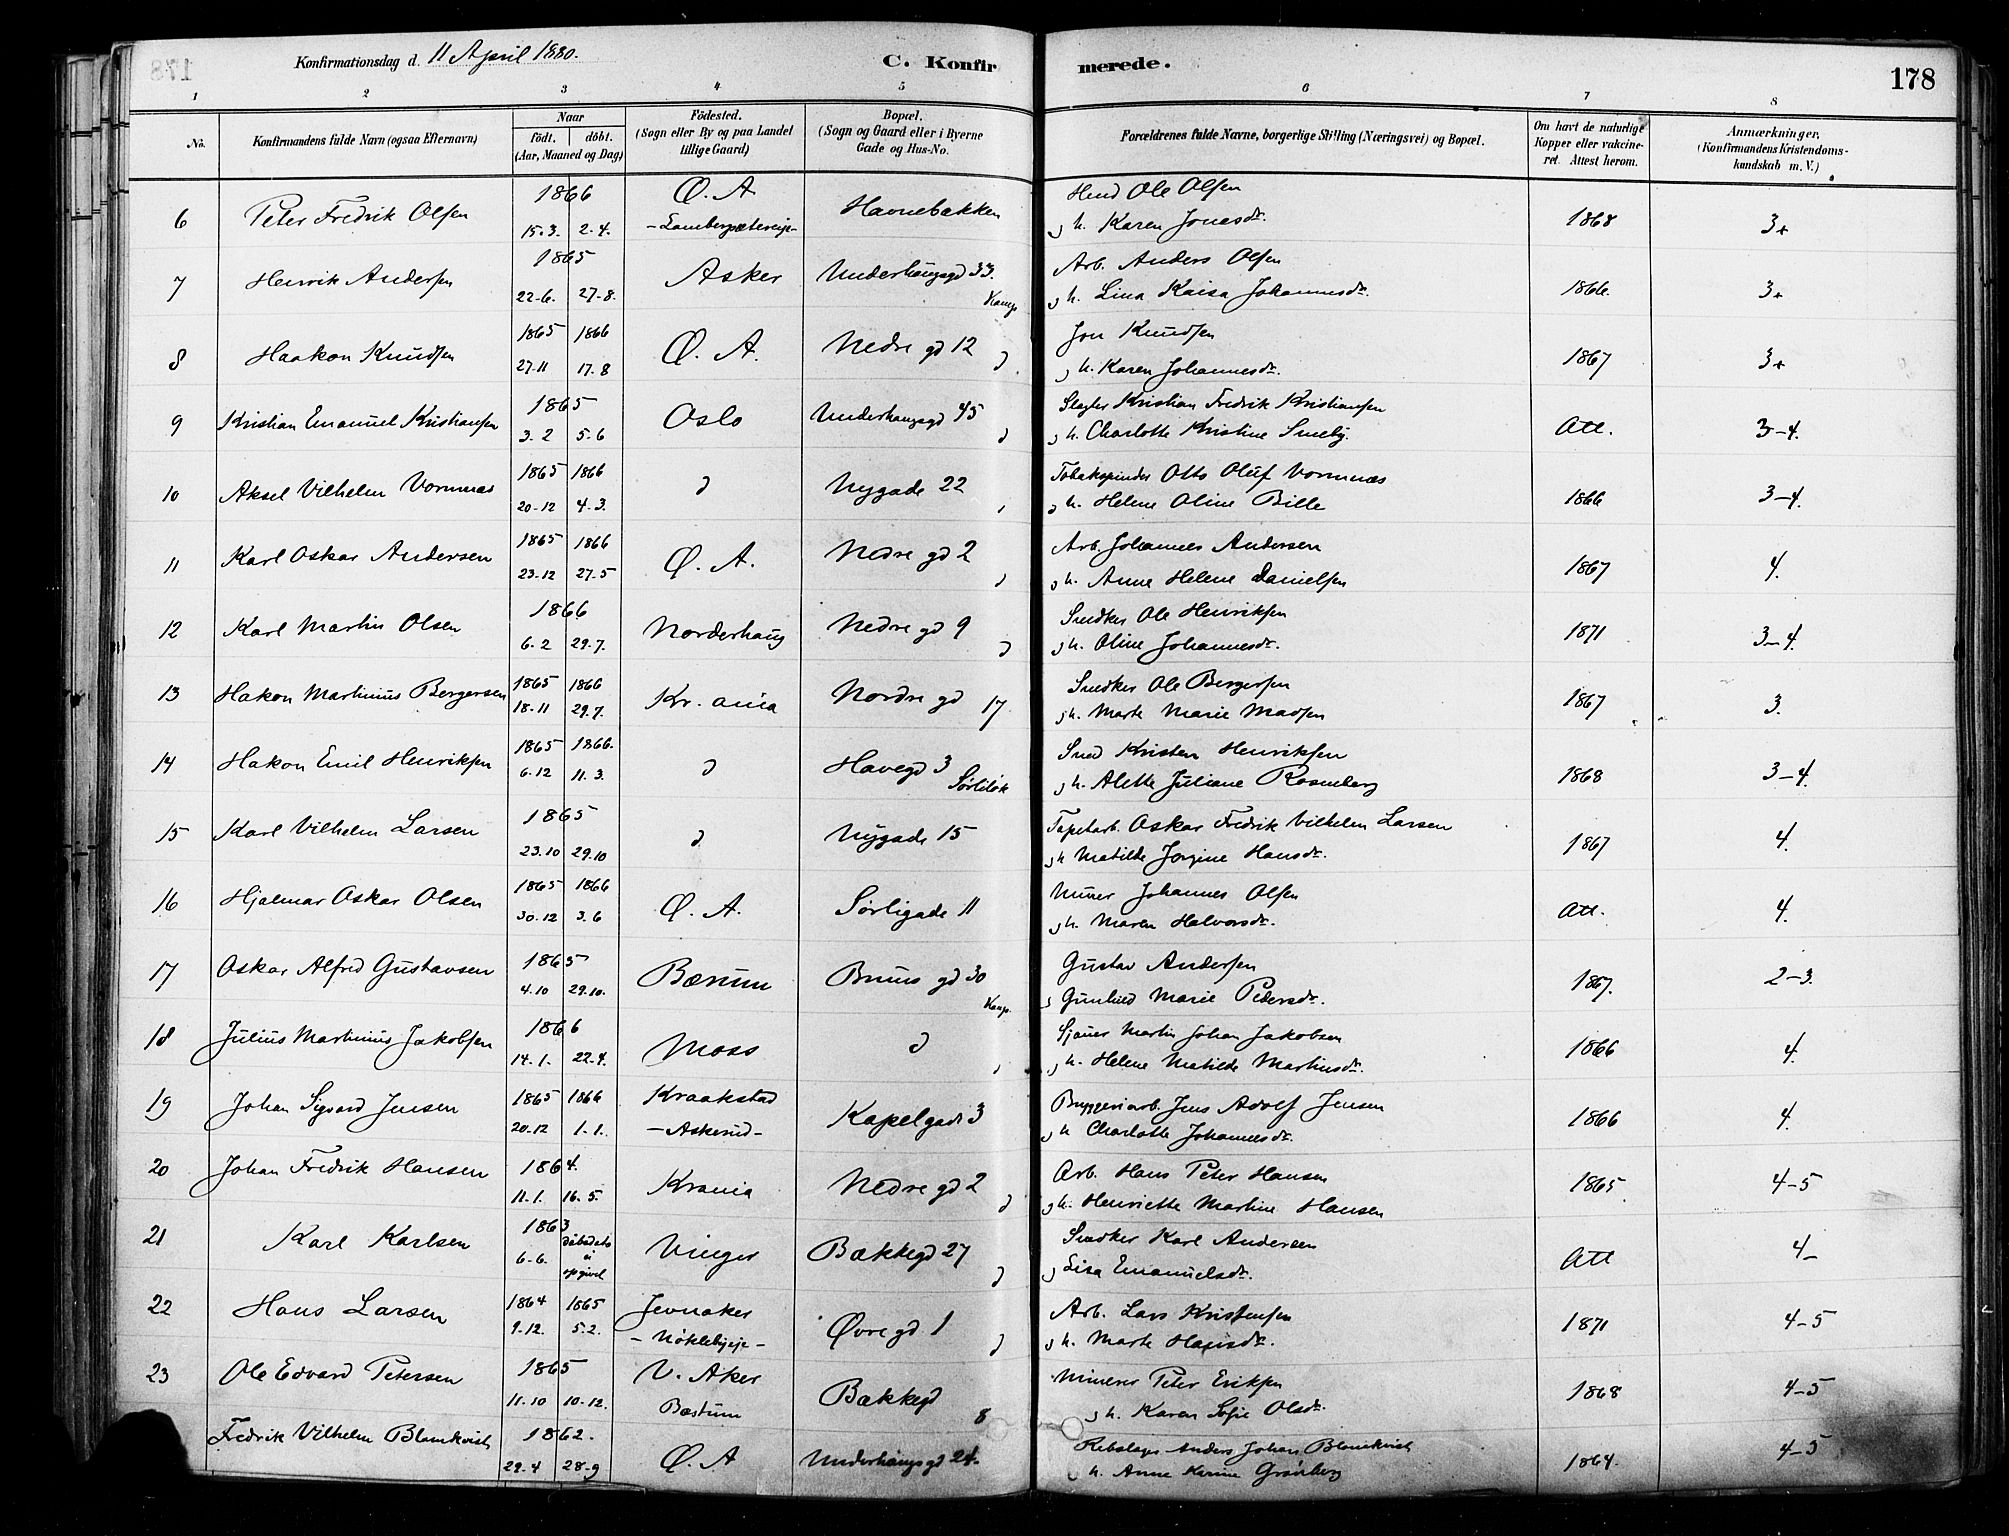 178
Konfirmationsdag d. 11 April 1880.
C. Konfirmerede.
178
1 2 3 4 5 6 7 8
No.
Konfirmandens fulde Navn (ogsaa Efternavn)
Naar
födt. döbt.
(Aar, Maaned og Dag)
Födested.
(Sogn eller By og paa Landet tillige Gaard)
Bopæl.
(Sogn og Gaard eller i Byerne Gade og Hus-No.
Forældrenes fulde Navne, borgerlige Stilling (Næringsvei) og Bopæl.
Om havt de naturlige Kopper eller vakcineret. Attest herom.
Anmærkninger,
(Konfirmandens Kristendomskundskab m. V.)
6 Peter Fredrik Olsen 1866 15-3. 2-4. Ø. A Havnebakken Ole Olsen
h. Karen Jonasdr. 1868 3+
7 Henrik Andersen 1865 22-6. 27-8. Asker Underhaugsgd 33. Kamp Arb. Anders Olsen
h. Lina Kaisa Johannesdr. 1866. 3+
8 Haakon Knudsen 1865 27-11 1866 17-8 Ø. A. Nedre gd 12 Jon Knudsen
h. Karen Johannesdr. 1867 3+
9 Kristian Emanuel Kristiansen 1865 3-2 5-6 Oslo Underhaugsgd 45 Slagter Kristian Fredrik Kristiansen
h. Charlotte Kristine Smeby. Att. 3-4.
10 Aksel Vilhelm Vormnæs 1865 20-12 1866 4-3. d Nygade 22 Tobakspinder Otto Oluf Vormnæs
h. Helene Oline Bille 1866 3-4.
11 Karl Oskar Andersen 1865 23-12 1866 27-5 Ø. A. Nedre gd 2 Arb. Johannes Andersen
h. Anne Helene Danielsen 1867 4.
12 Karl Martin Olsen 1866 6-2 29-7. Norderhaug Nedre gd 9 Snedker Ole Henriksen
h. Oline Johannesdr. 1871 3-4.
13 Hakon Martinius Bergersen 1865 18-11 1866 29-7. Kr.ania Nordre gd 17 Snedker Ole Bergersen
h. Marte Marie Madsen 1867 3.
14 Hakon Emil Henriksen 1865 6-12 1866. 11-3. d Havegd 3 Kristen Henriksen
h. Alette Juliane Rosenberg 1868 3-4.
15 Karl Vilhelm Larsen 1865 23.10 29.10 d Nygade 15 Tapetarb. Oskar Fredrik Vilhelm Larsen
h Matilde Jorgine Hansdr. 1867 4.
16 Hjalmar Oskar Olsen 1865 30-12 1866 3.6 Ø. A. Sørligade 11 Murer Johannes Olsen
h. Maren Halvorsdr. Att. 4.
17 Oskar Alfred Gustavsen 1865 4.10 29.10. Bærum Bruns gd 30 Kamp Gustav Andersen
Gunhild Marie Pedersdr. 1867. 2-3.
18 Julius Martinius Jakobsen 1866 14-1. 22-4. Moss d Sjauer Martin Johan Jakobsen
h. Helene Matilde Martinsdr. 1866 4.
19 Johan Sigvard Jensen 1865 20-12 1866 1-1. Kraakstad
-Askerud- Kapelgade 3 Bryggeriarb. Jens Adolf Jensen
h Charlotte Johannesdr. 1866 4.
20 Johan Fredrik Hansen 1864. 11-1. 16-5. Krania Nedre gd 2 Arb. Hans Peter Hansen
h. Henriette Martine Hansen 1865 4-5
21 Karl Karlsen 1863 6-6. dåbsdato ei opgivet Vinger Bækkegd 27 Snedker Karl Andersen
Lisa Emanuelsdr. Att 4-
22 Hans Larsen 1864 9-12. 1865 5-2. Jevnaker
-Nøklebyeje- Øvre gd 1 Arb. Lars Kristensen
h. Marte Hansdr. 1871 4-5
23 Ole Edvard Petersen 1865 11-10 10-12. V. Aker
Bæstum Bækkegd 8 Minerer Peter Eriksen
h. Karen Sofie Olsdr. 1868 4-5
Fredrik Vilhelm Blomkvist 1862. 29-4 28-9 Ø. A Underhaugsgd 24. Rebslager Anders Johan Blomkvist
h. Anne Karine Grønberg 1864. 4-5